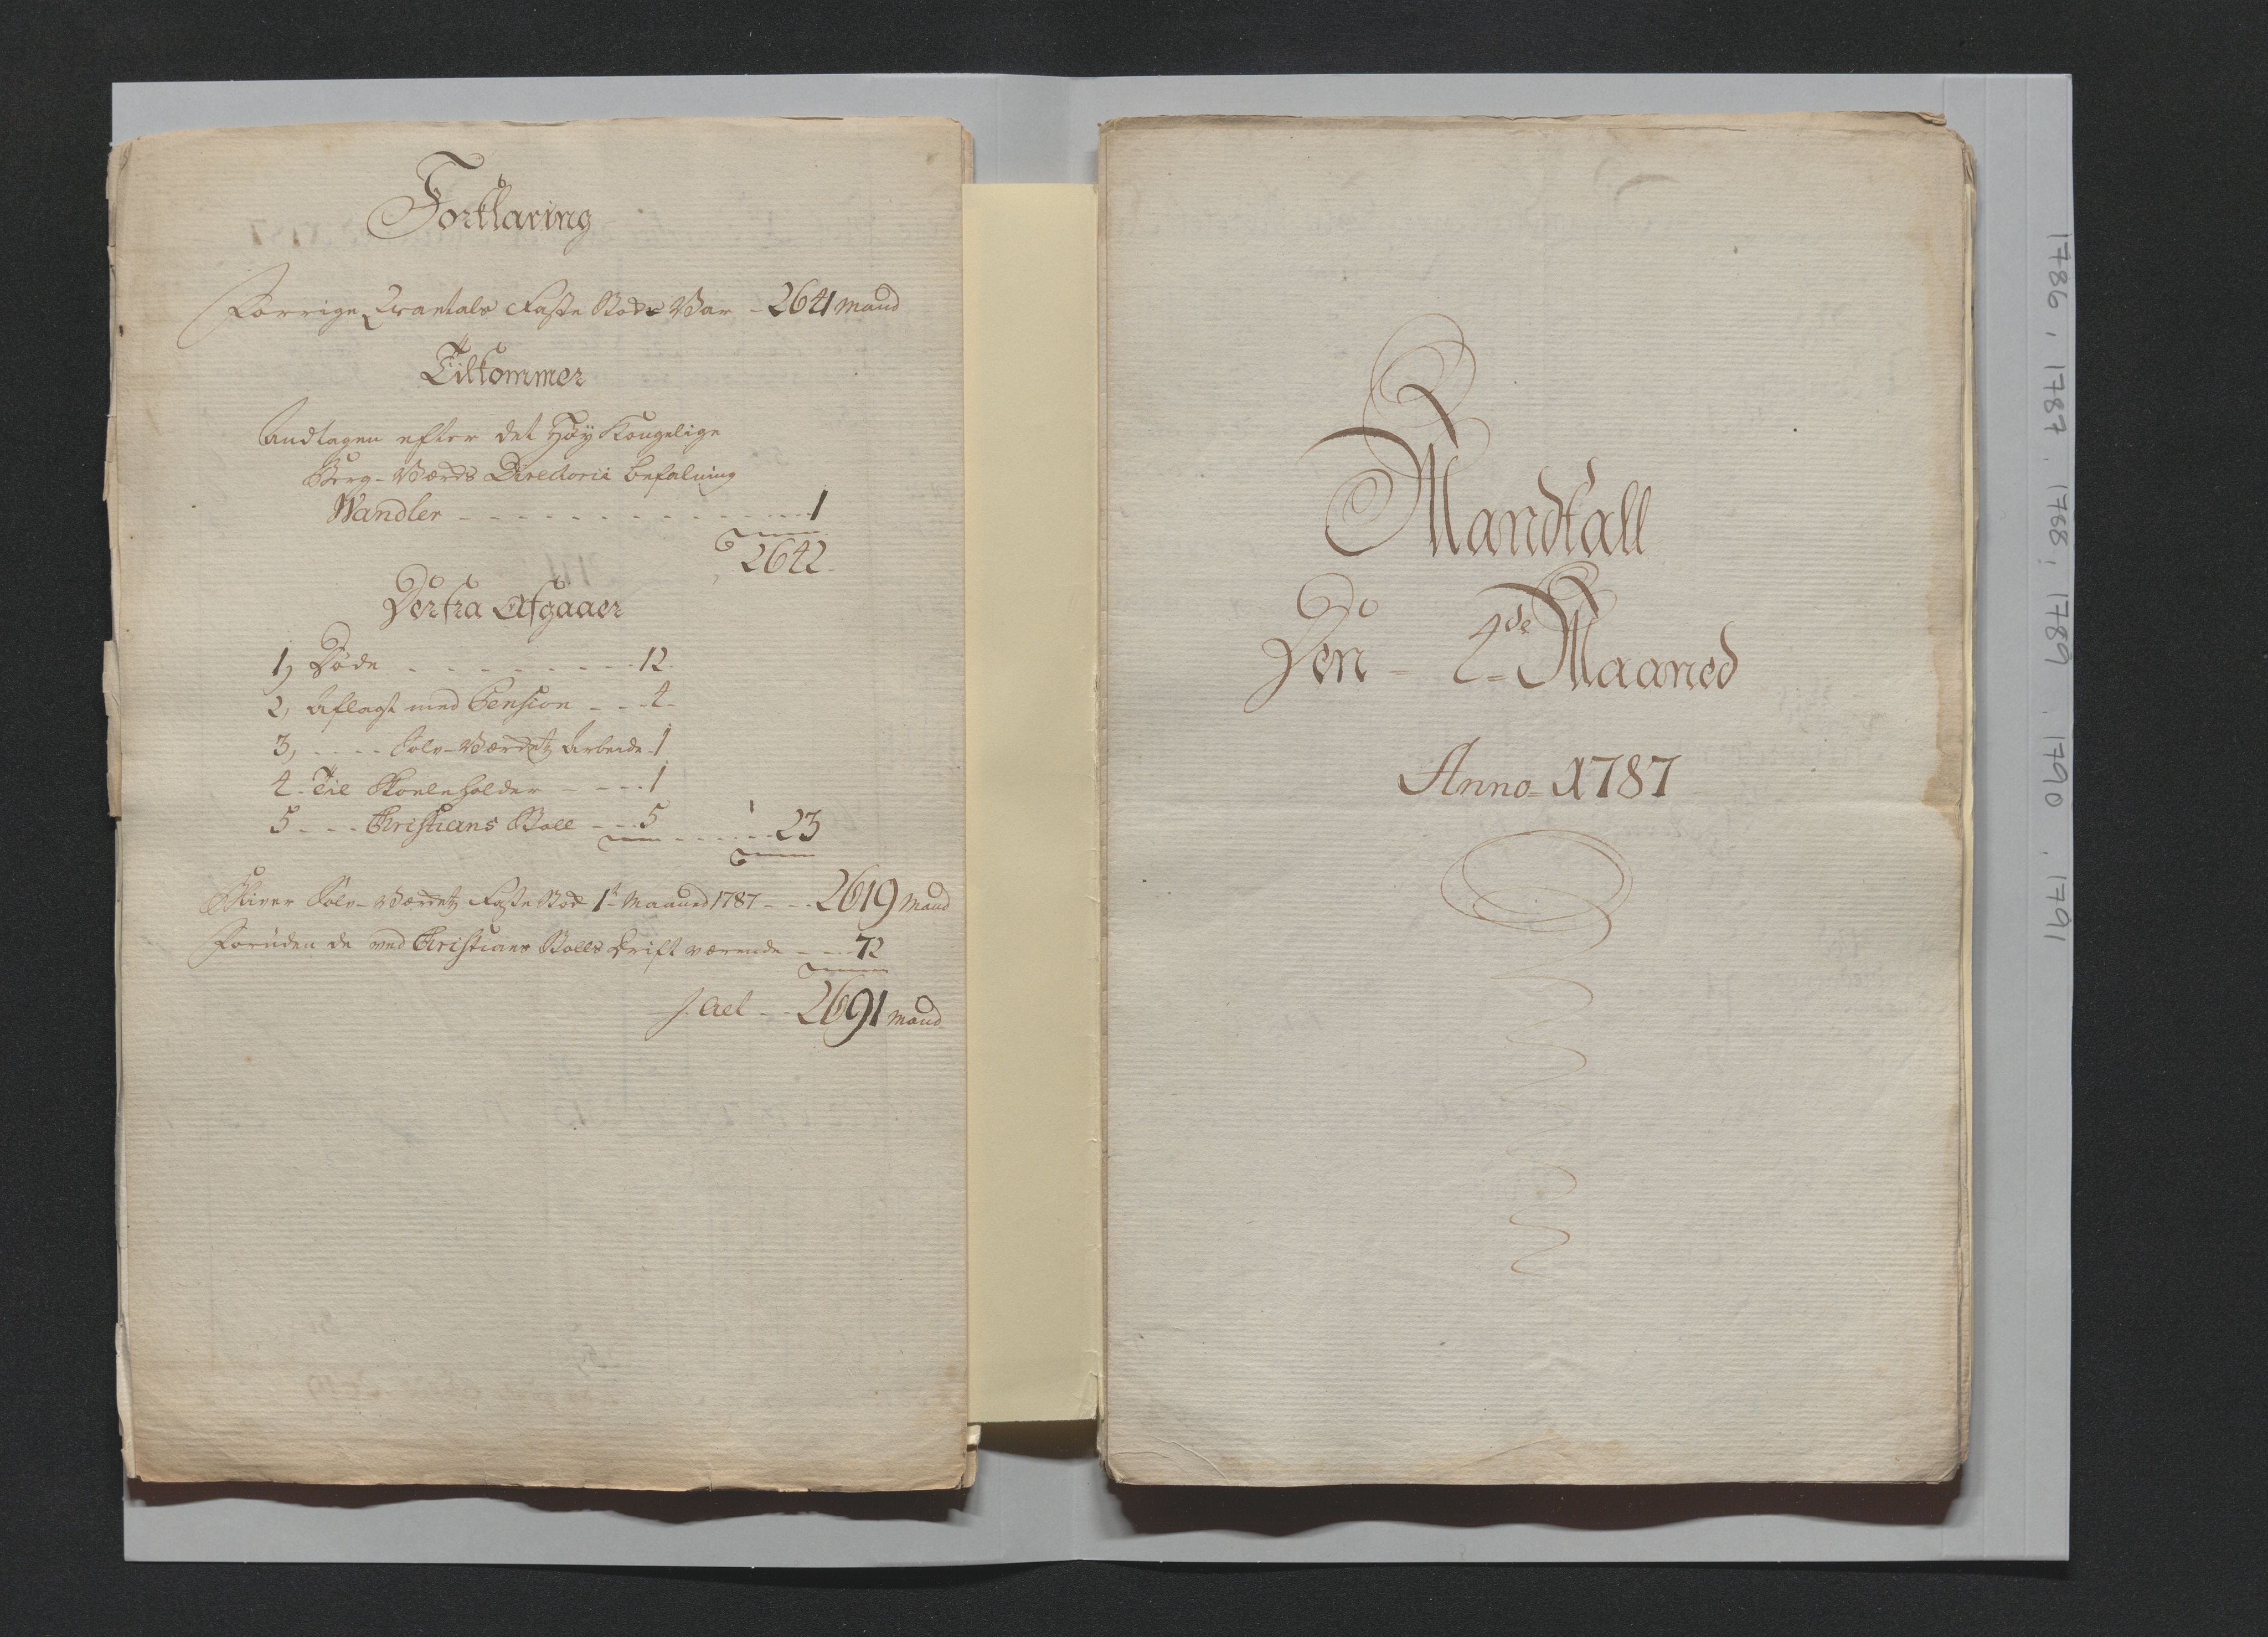 Forklaring
Forrige Qvartals Faste Stok Var - 2641 mand
Tilkommer
Andtagen efter det Høy Kongelige
Berg-Værks Directorii befalning
Wandler - - - 1
2642
Derfra Afgaaer
1, Døde - - - 12
2, Aflagt med Pension - - - 4
3, - - - Sølv-Værketz Arbeide - 1
4 - Til Skoeleholder - - - 1
5 - - - Christians Stoll - - - 5 - - - 23
Bliver Sølv-Værketz Faste Stok 1te Maaned 1787 - - - 2619 mand
Foruden de ved Christians Stolls drift værende - - - 72
J. Alt - - 2691 mand
Mandtall
Den - 4de Maaned
Anno 1787
1786, 1787. 1788, 1789. 1790. 1791